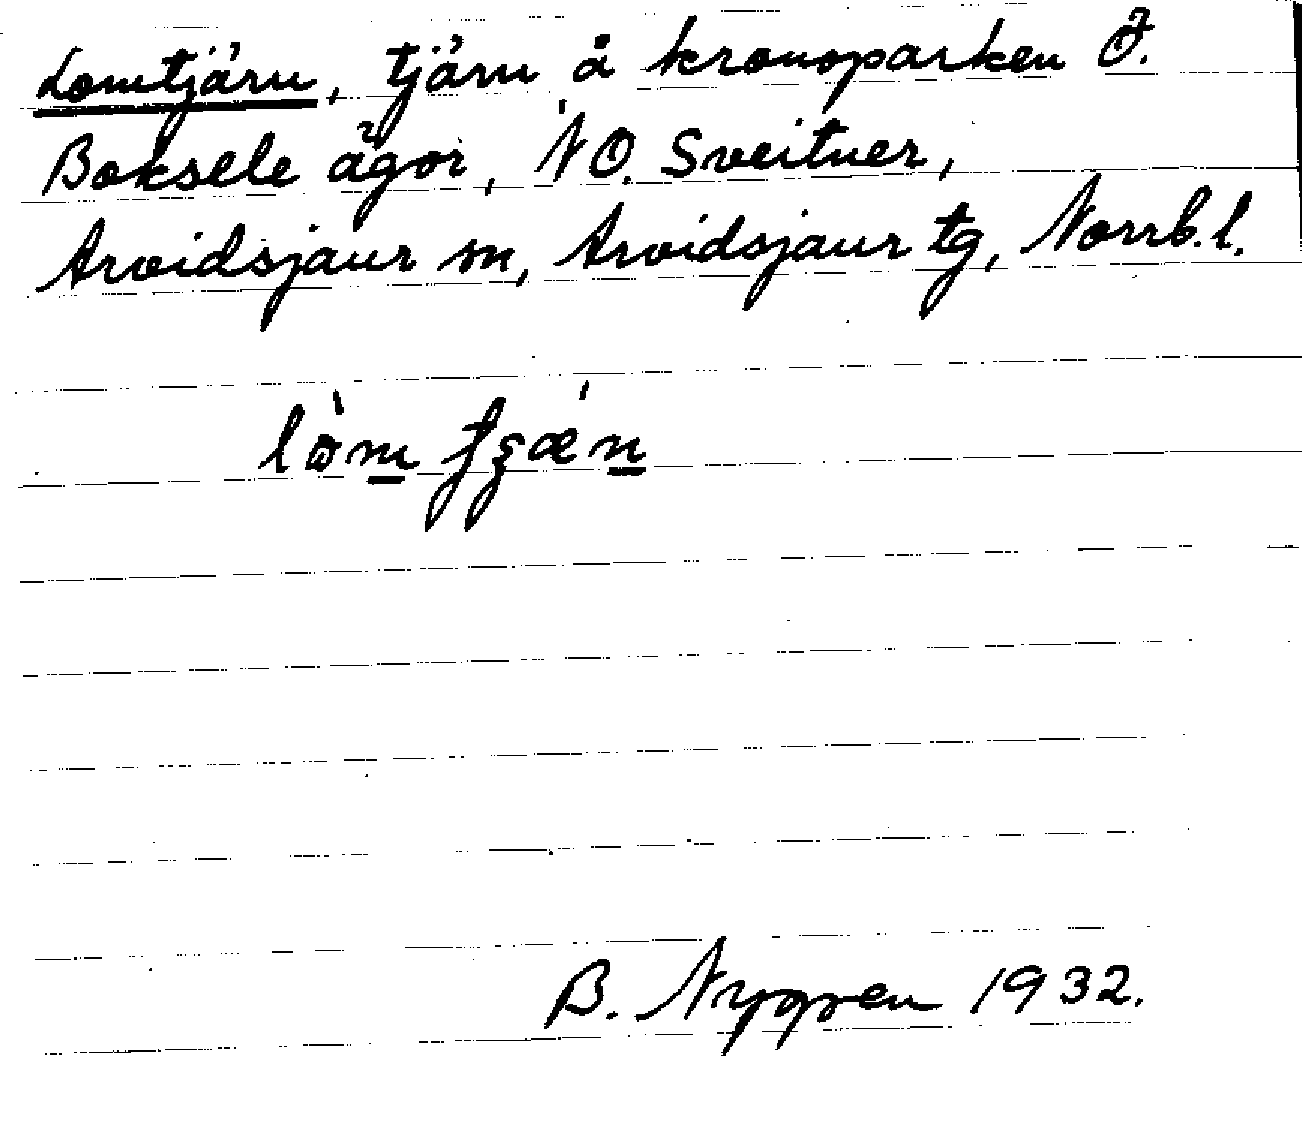 Lomtjärn, tjärn å kronoparken Ö.
Boksele ägor, NO. Sveitner,
Arvidsjaur sn, Arvidsjaur tg, Norrb. l.
B. Nygren 1932.